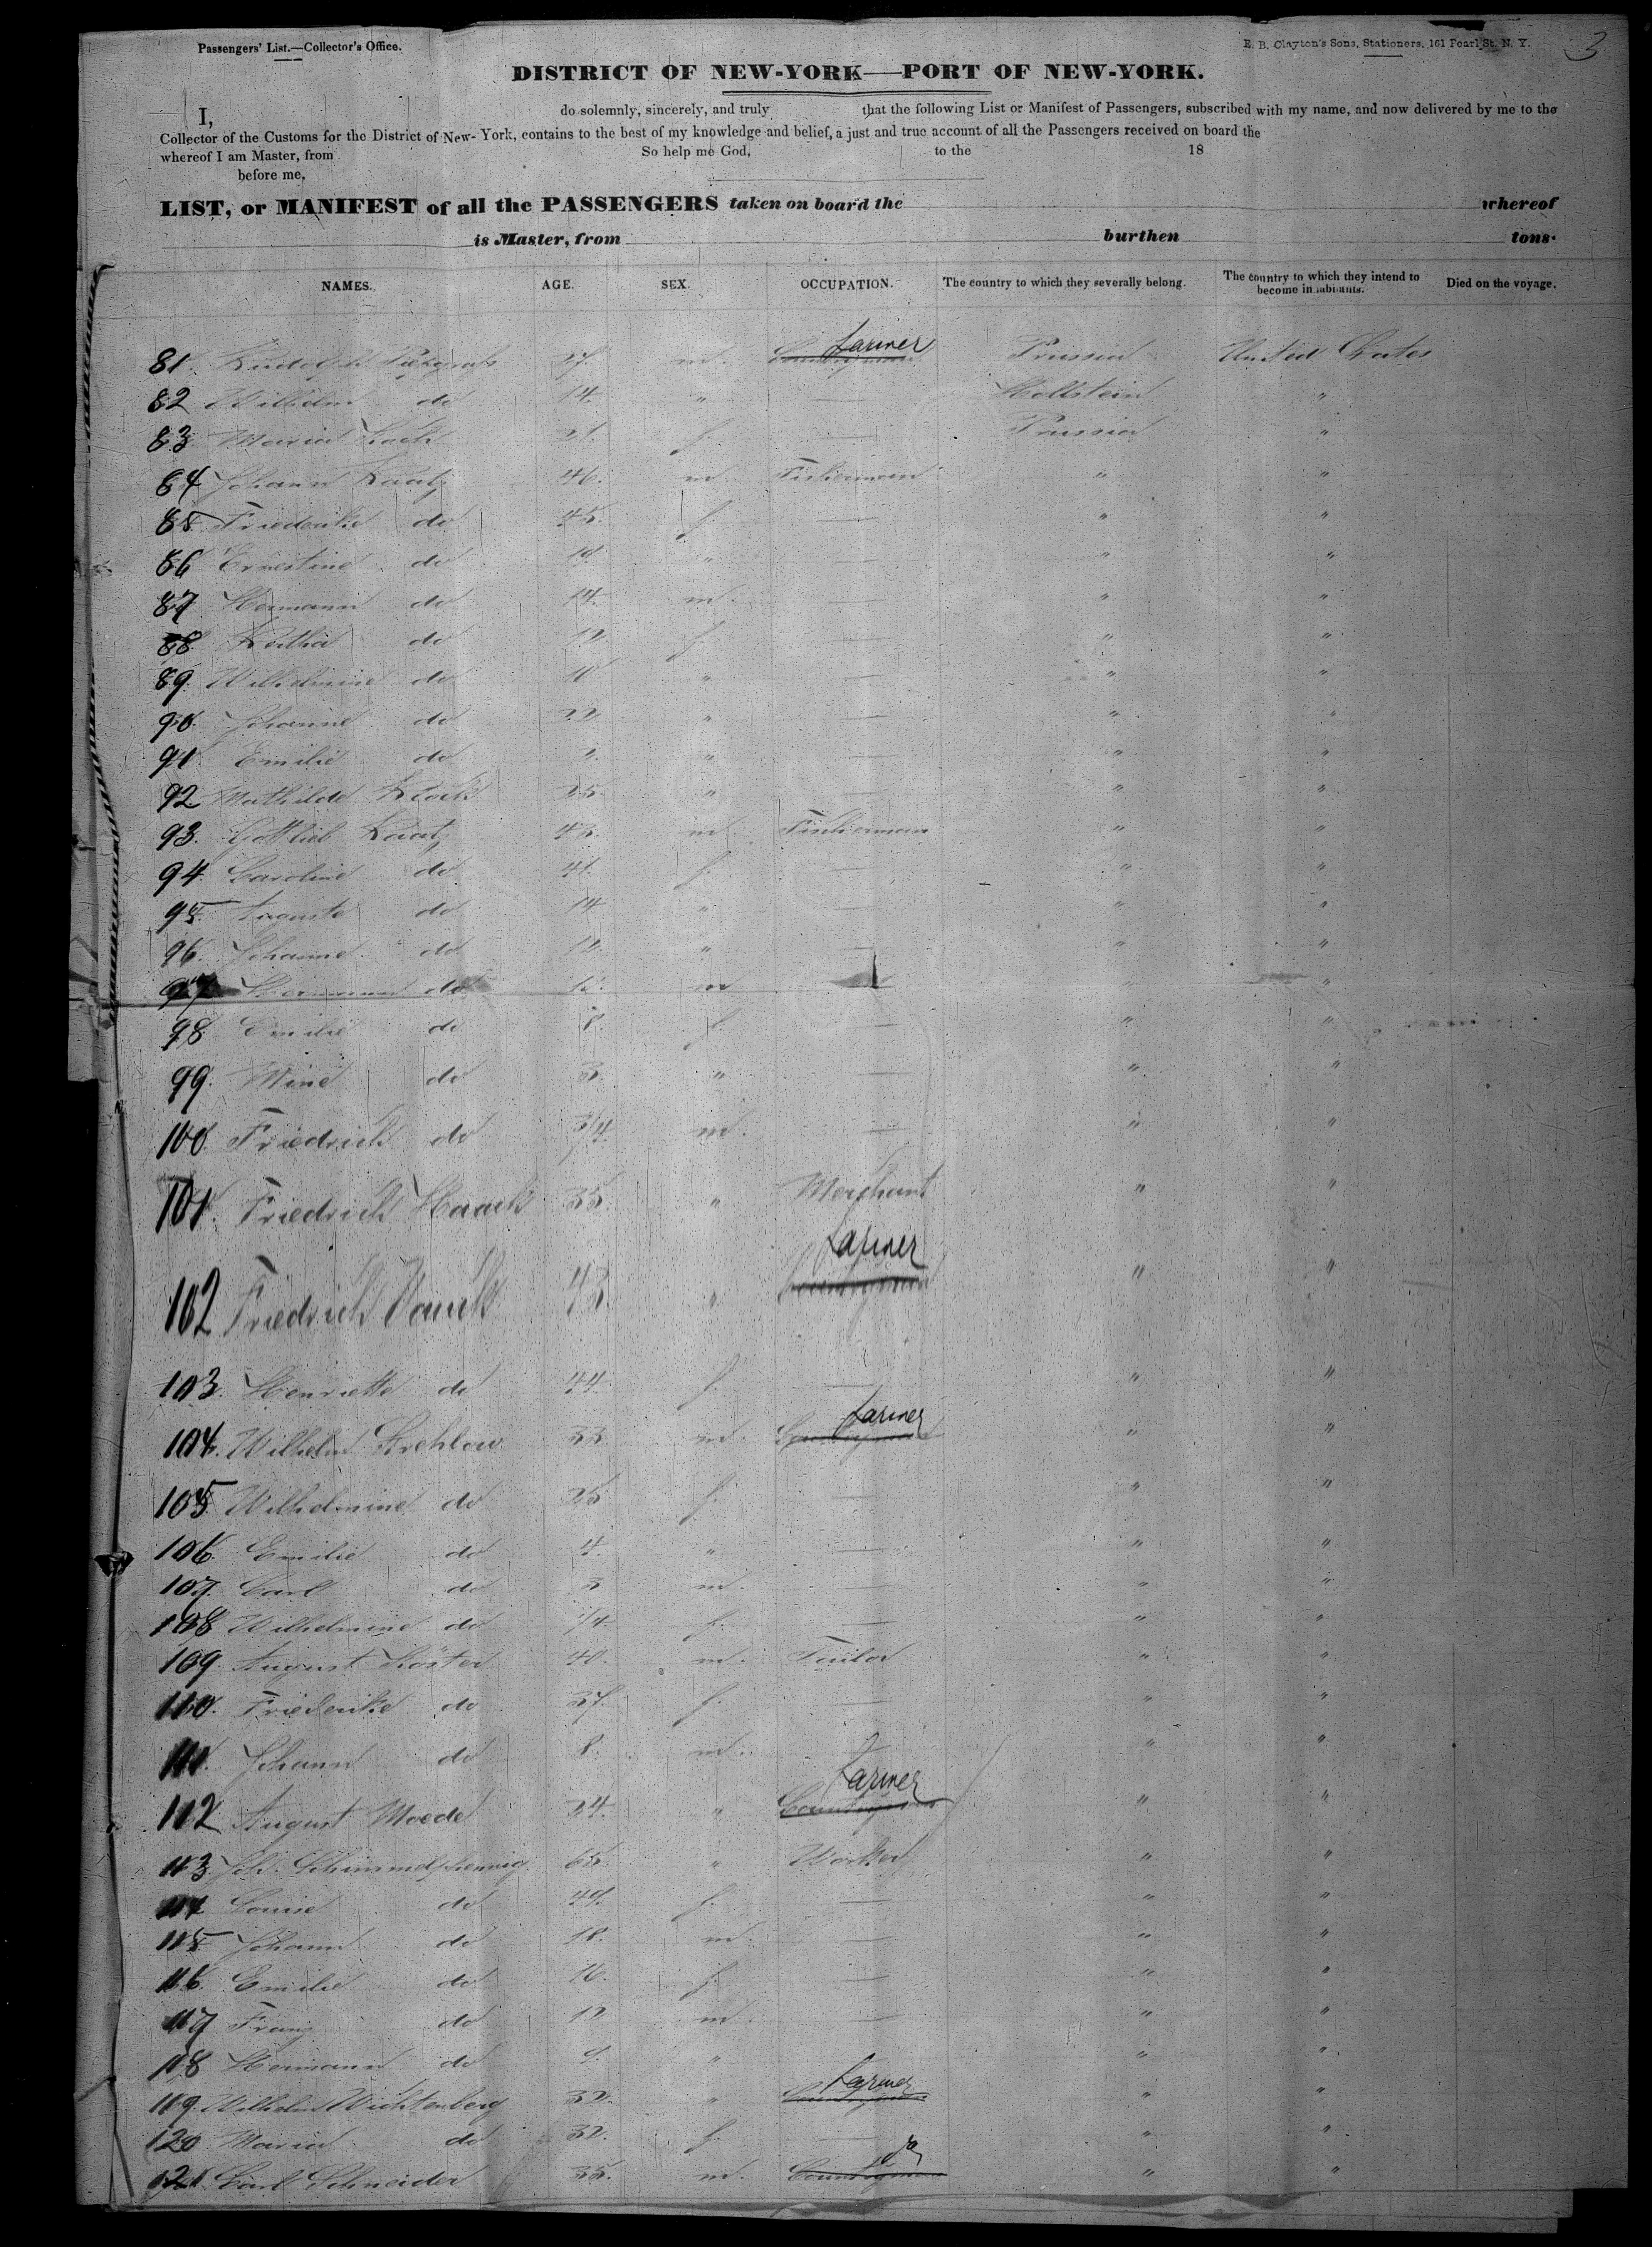 Passengers' List.—Collector's Office.
E. B. Clayton's Sons, Stationers, 161 Pearl St. N. Y.
3
DISTRICT OF NEW-YORK—PORT OF NEW-YORK.
I, do solemnly, sincerely, and truly that the following List or Manifest of Passengers, subscribed with my name, and now delivered by me to the
Collector of the Customs for the District of New-York, contains to the best of my knowledge and belief, a just and true account of all the Passengers received on board the
whereof I am Master, from So help me God, to the 18
before me,
LIST, or MANIFEST of all the PASSENGERS taken on board the whereof
is Master, from burthen tons.
NAMES. AGE. SEX. OCCUPATION. The country to which they severally belong. The country to which they intend to become inhabitants. Died on the voyage.
Farmer
81. Rudolph 27. m. Prussia United States
82 Wilhelm do 14. " — Hollstein "
83. Maria 21. f. — Prussia "
84 Johann Raatz 46. m Fisherman " "
85 Friederike do 45. f. — " "
86 Ernestine do 19. " — " "
87 Hermann do 14. m. — " "
88. do 12 f. — " "
89. Wilhelmine do 11 " — " "
90. Johanne do 22 " — " "
91 Emilie do " — " "
92 Mathilde 25. " — " "
93. Gottlieb Raatz 43. m Fisherman " "
94. Caroline do 41. f. — " "
95. Auguste do 14 " — " "
96. Johanne do 12. " — " "
97 Hermann do m " "
98 Emilie do 8. f. — " "
99. Mine do 3. " — " "
100. Friedrich do 3/4 m. — " "
101. Friedrich Haack 35. " Merchant " "
Farmer
102 Friedrich 43. " Countryman " "
103. Henriette do 44. f. — " "
Farmer
104. Wilhelm Strehlow 33. m. Countryman " "
105 Wilhelmine do 25 f. — " "
106. Emilie do 4. " — " "
107. Carl do 3 m. — " "
108 Wilhelmine do 1/4. f. — " "
109. August Köster 40. m. Tailor " "
110. Friederike do 37. f. — " "
111. Johann do 8. m. — " "
Farmer
112 August Moede 24. " Countryman " "
113. Joh. Schimmelpfennig 65. " Worker " "
114 Louise do 49. f. — " "
115 Johann do 18. m. — " "
116. Emilie do 16. f. — " "
117 Franz do 12 m. — " "
118 Hermann do 9. " " "
Farmer
119. Wilhelm Wichtenberg 32. " Countryman " "
120 Maria do 32. f. — " "
do
121 Carl Schneider 35. m. Countryman " "